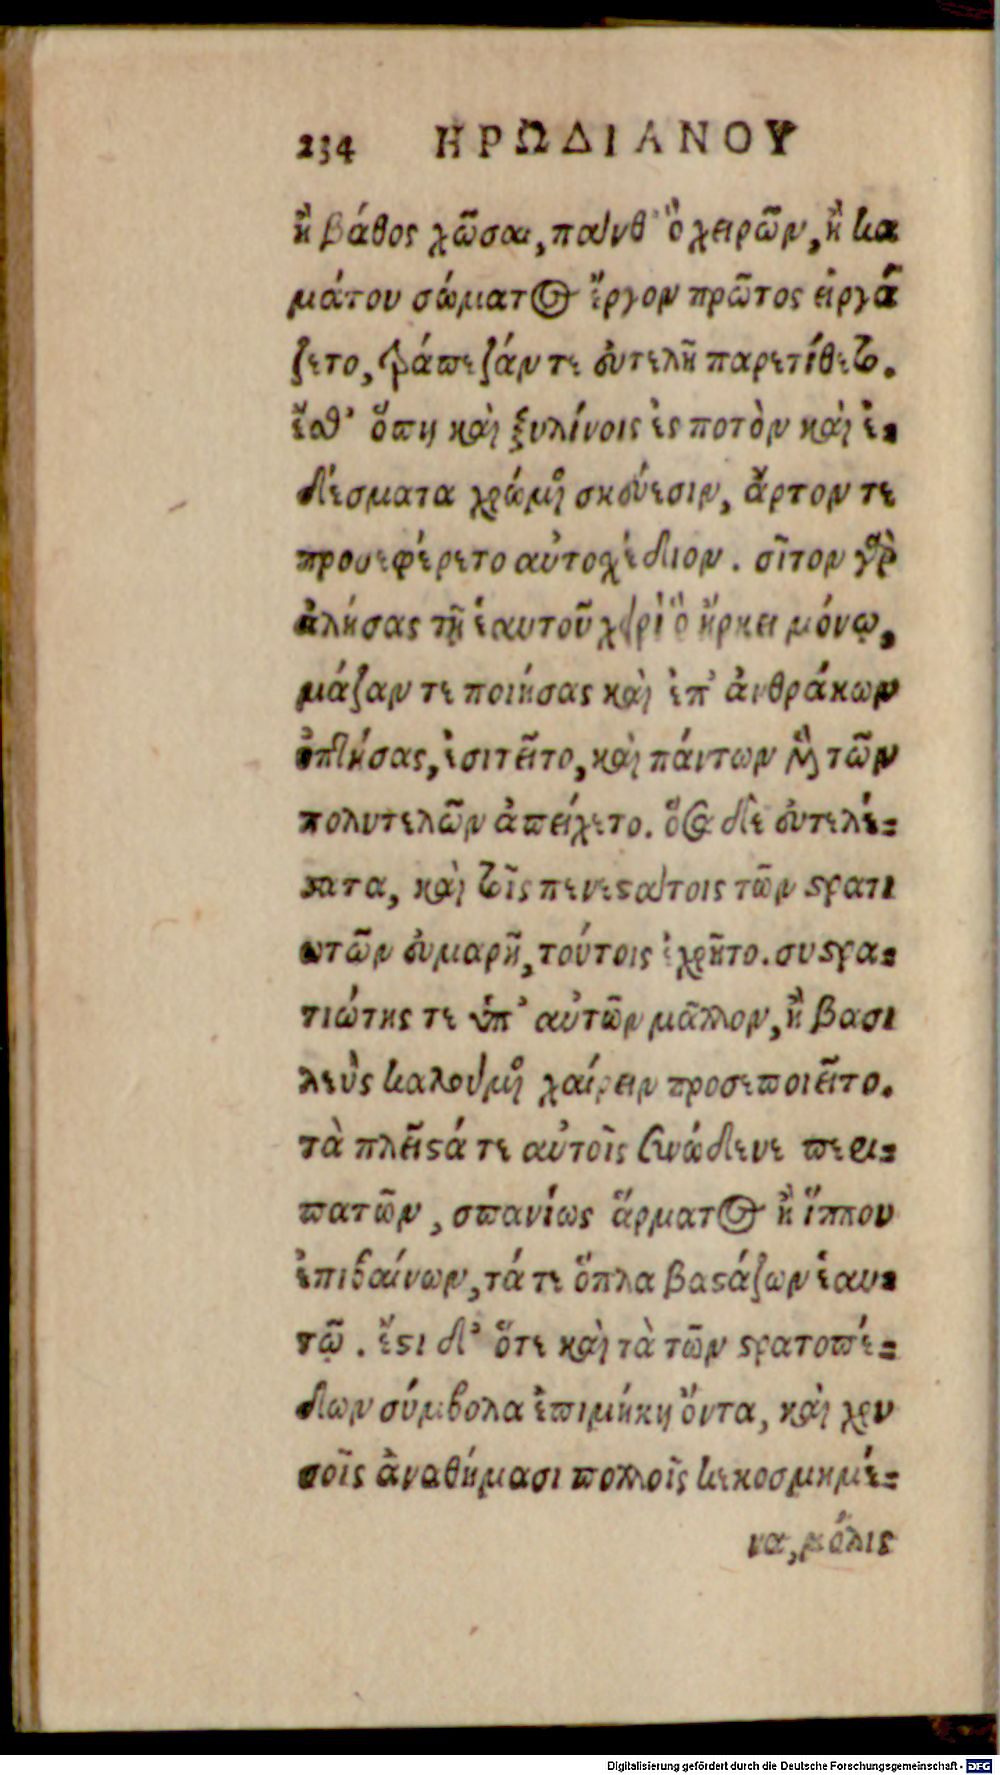 234 ΗΡΩΔΙΑΝΟΥ
ἢ βάθος χῶσαι, πάνθ' ὃ χειρῶν, ἢ κα
μάτου σώματος ἔργον πρῶτος εἰργά
ζετο, τράπεζάν τε εὐτελῆ παρετίθετο.
ἔσθ' ὅπη καὶ ξυλίνοις ἐς ποτὸν καὶ ἐ-
δέσματα χρώμενος σκεύεσιν, ἄρτον τε
προσεφέρετο αὐτοχέδιον. σῖτον γὰρ
ἀλήσας τῇ ἑαυτοῦ χειρὶ ὃ ἤρκει μόνῳ,
μάζαν τε ποιήσας καὶ ἐπ' ἀνθράκων
ὀπτήσας, ἐσιτεῖτο, καὶ πάντων μὲν τῶν
πολυτελῶν ἀπείχετο. ὅσα δὲ εὐτελέ-
στατα, καὶ τοῖς πενεστάτοις τῶν στρατι
ωτῶν εὐμαρῆ, τούτοις ἐχρῆτο. συστρα-
τιώτης τε ὑπ' αὐτῶν μᾶλλον, ἢ βασι
λεὺς καλούμενος χαίρειν προσεποιεῖτο.
τὰ πλεῖστά τε αὐτοῖς συνώδευε περι-
πατῶν, σπανίως ἅρματος ἢ ἵππου
ἐπιβαίνων, τά τε ὅπλα βαστάζων ἑαυ-
τῷ. ἔστι δ' ὅτε καὶ τὰ τῶν στρατοπέ-
δων σύμβολα ἐπιμήκη ὄντα, καὶ χρυ
σοῖς ἀναθήμασι πολλοῖς κεκοσμημέ-
να, μόλις
Digitalisierung gefördert durch die Deutsche Forschungsgemeinschaft - DFG